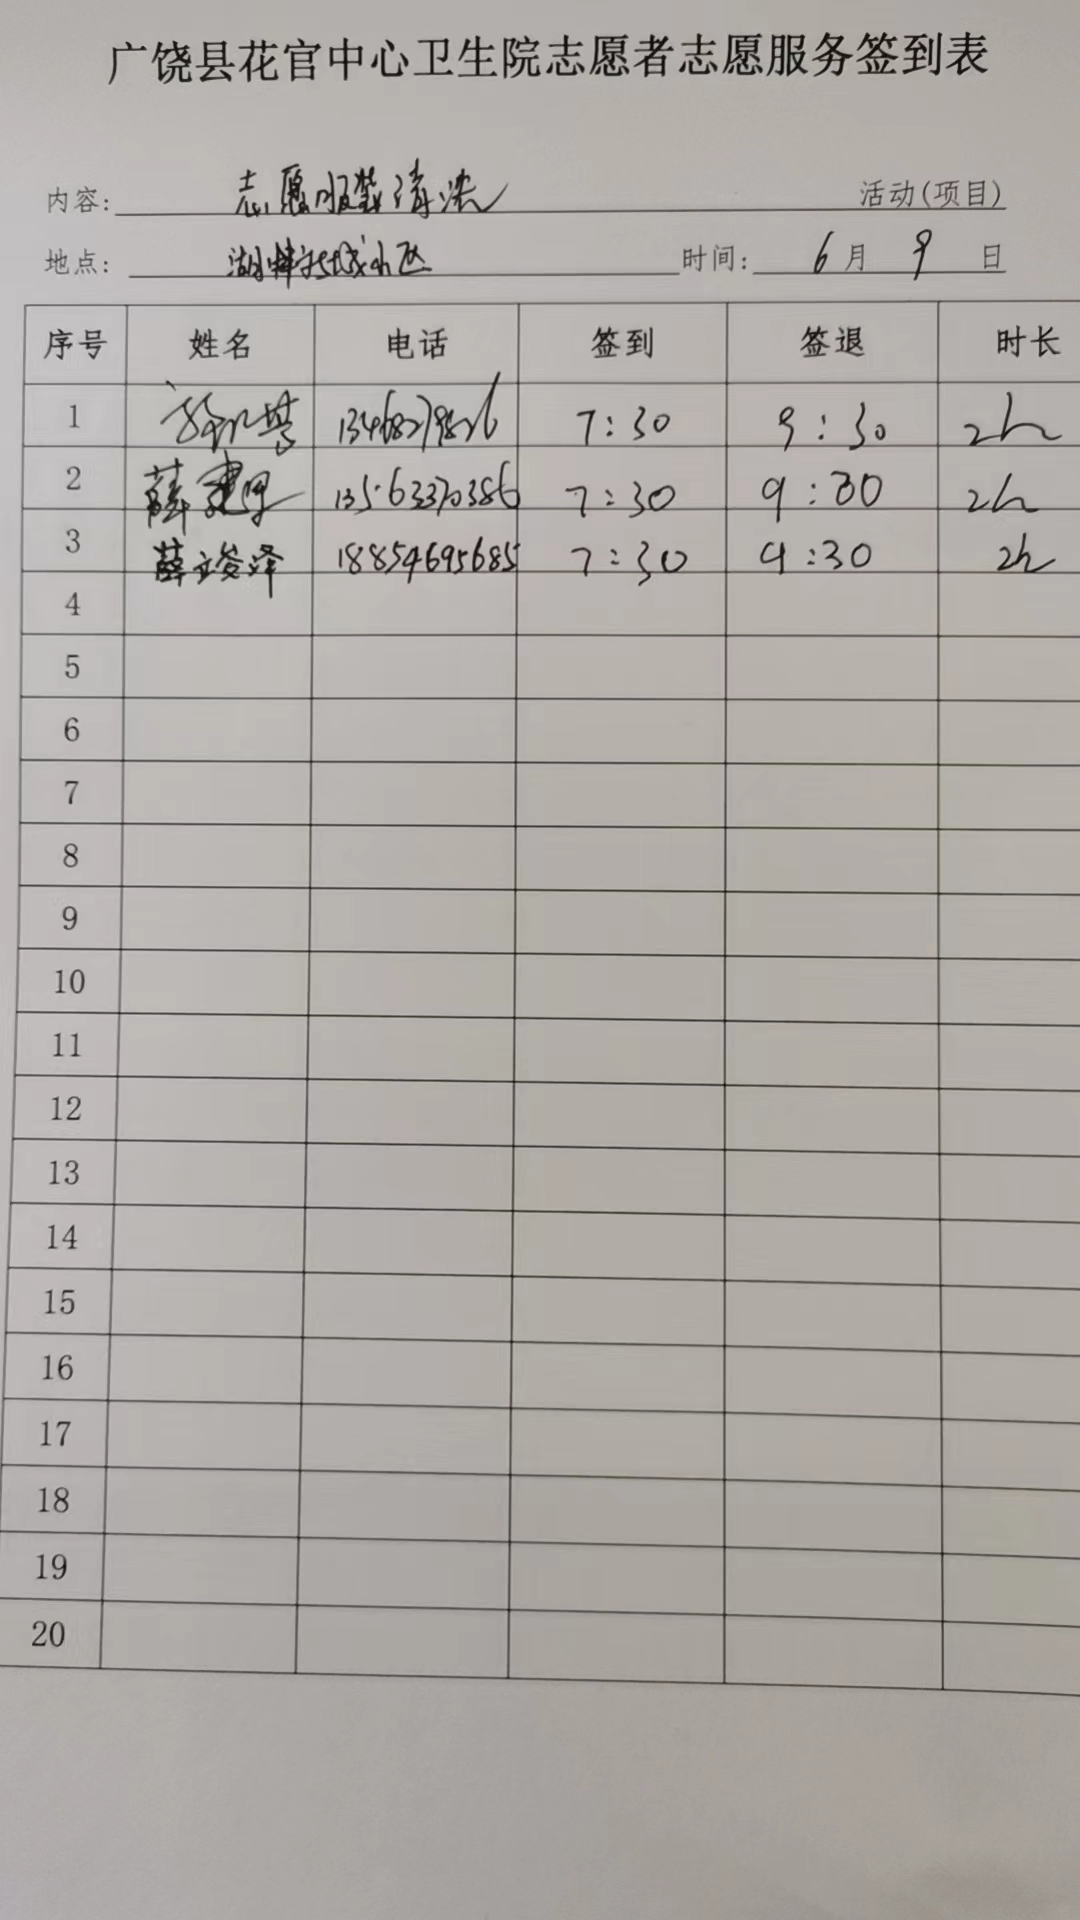 广饶县花官中心卫生院志愿者志愿服务签到表
内容: 志愿服装清洗 活动(项目)
地点: 小区 时间: 6 月 9 日
序号 姓名 电话 签到 签退 时长
1 7:30 9:30 2h
2 薛 13563370386 7:30 9:30 2h
3 薛文俊泽 18854695685 7:30 9:30 2h
4
5
6
7
8
9
10
11
12
13
14
15
16
17
18
19
20